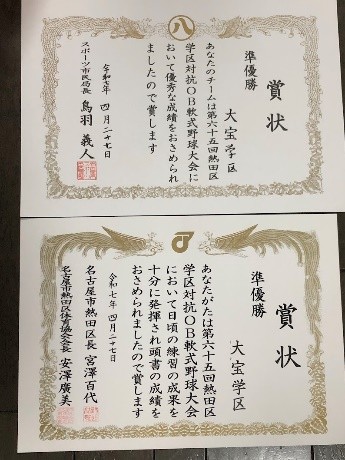 賞状
準優勝
大宝学区
あなたのチームは第六十五回熱田区
学区対抗OB軟式野球大会に
おいて優秀な成績をおさめられ
ましたので賞します
令和七年 四月二十七日
スポーツ市民局長 鳥羽義人
賞状
準優勝
大宝学区
あなたがたは第六十五回熱田区
学区対抗OB軟式野球大会
において日頃の練習の成果を
十分に発揮され頭書の成績を
おさめられましたので賞します
令和七年 四月二十七日
名古屋市熱田区長 宮澤百代
名古屋市熱田区体育協会会長 安澤廣美